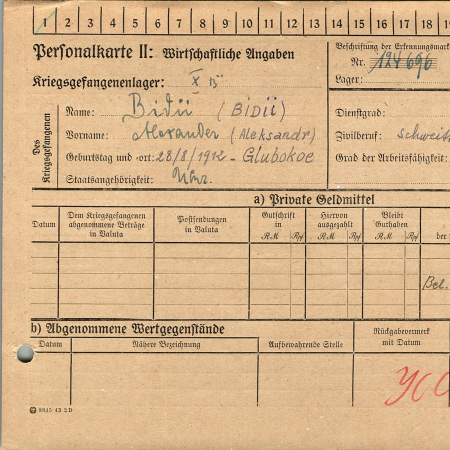 1 2 3 4 5 6 7 8 9 10 11 12 13 14 15 16 17 18 19
Personalkarte II: Wirtschaftliche Angaben
Beschriftung der Erkennungsmark
Nr. 124696
Kriegsgefangenenlager: X B
Lager:
Des Kriegsgefangenen
Name: Bidii (BIDII)
Dienstgrad:
Vorname: Alexander (Aleksandr)
Zivilberuf: Schweiß
Geburtstag und -ort: 28/8/1912 - Glubokoe
Grad der Arbeitsfähigkeit:
Staatsangehörigkeit: Ukr.
a) Private Geldmittel
Datum
Dem Kriegsgefangenen abgenommene Beträge in Valuta
Postsendungen in Valuta
Gutschrift in
RM Rpf
Hiervon ausgezahlt
RM Rpf
Bleibt Guthaben
RM Rpf
der
Bel.
b) Abgenommene Wertgegenstände
Datum
Nähere Bezeichnung
Aufbewahrende Stelle
Rückgabevermerk mit Datum
8845 43 2 D